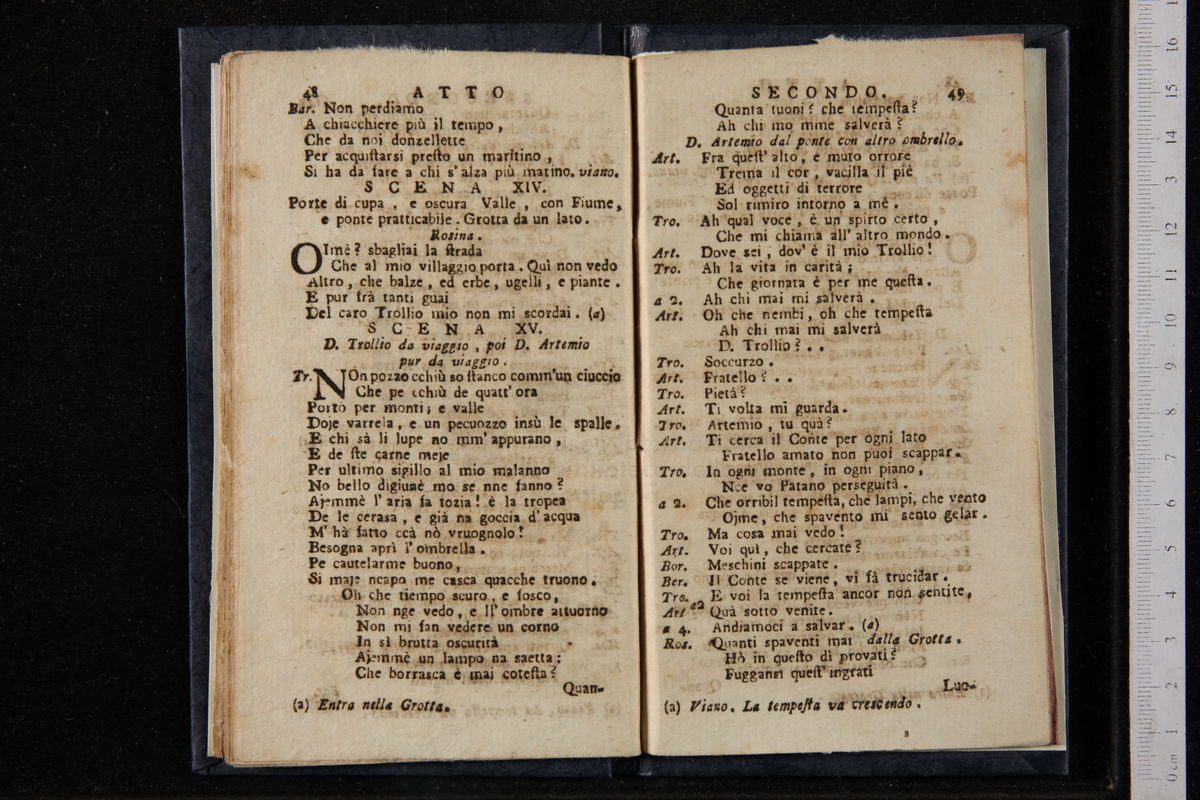 48 ATTO
Bar. Non perdiamo
A chiacchiere più il tempo,
Che da noi donzellette
Per acquiſtarsi preſto un maritino,
Si ha da fare a chi s'alza più matino. viano.
SCENA XIV.
Porte di cupa, e oscura Valle, con Fiume,
e ponte pratticabile. Grotta da un lato.
Rosina.
OImè? sbagliai la ſtrada
Che al mio villaggio porta. Quì non vedo
Altro, che balze, ed erbe, ugelli, e piante.
E pur frà tanti guai
Del caro Trollio mio non mi scordai. (a)
SCENA XV.
D. Trollio da viaggio, poi D. Artemio
pur da viaggio.
Tr. NOn pozzo cchiù so ſtanco comm'un ciuccio
Che pe cchiù de quatt'ora
Porto per monti; e valle
Doje varrela, e un pecuozzo insù le spalle.
E chi sà li lupe no mm'appurano,
E de ſte carne meje
Per ultimo sigillo al mio malanno
No bello digiunè mo se nne fanno?
Ajemmè l'aria fa tozia! è la tropea
De le cerasa, e già na goccia d'acqua
M'hà fatto ccà nò vruognolo!
Besogna aprì l'ombrella.
Pe cautelarme buono,
Si maje ncapo me casca quacche truono.
Oh che tiempo scuro, e fosco,
Non nge vedo, e ll'ombre attuorno
Non mi fan vedere un corno
In sì brutta oscurità
Ajemmè un lampo na saetta:
Che borrasca è mai coteſta?
Quan-
(a) Entra nella Grotta.
SECONDO. 49
Quanta tuoni? che tempeſta?
Ah chi mo mme salverà?
D. Artemio dal ponte con altro ombrello.
Art. Fra queſt'alto, e muto orrore
Trema il cor, vacilla il piè
Ed oggetti di terrore
Sol rimiro intorno a mè.
Tro. Ah qual voce, è un spirto certo,
Che mi chiama all'altro mondo.
Art. Dove sei, dov'è il mio Trollio!
Tro. Ah la vita in carità;
Che giornata è per me queſta.
a 2. Ah chi mai mi salverà.
Art. Oh che nembi, oh che tempeſta
Ah chi mai mi salverà
D. Trollio?..
Tro. Soccurzo.
Art. Fratello?..
Tro. Pietà?
Art. Ti volta mi guarda.
Tro. Artemio, tu quà?
Art. Ti cerca il Conte per ogni lato
Fratello amato non puoi scappar.
Tro. In ogni monte, in ogni piano,
Nce vo Patano perseguità.
a 2. Che orribil tempeſta, che lampi, che vento
Ojme, che spavento mi sento gelar.
Tro. Ma cosa mai vedo!
Art. Voi quì, che cercate?
Bor. Meschini scappate.
Ber. Il Conte se viene, vi fà trucidar.
Tro. E voi la tempeſta ancor non sentite,
Art a2 Quà sotto venite.
a 4. Andiamoci a salvar. (a)
Ros. Quanti spaventi mai dalla Grotta.
Hò in queſto dì provati?
Fuggansi queſt'ingrati
Luo-
(a) Viano. La tempeſta va crescendo.
0 cm 1 2 3 4 5 6 7 8 9 10 11 12 13 14 15 16